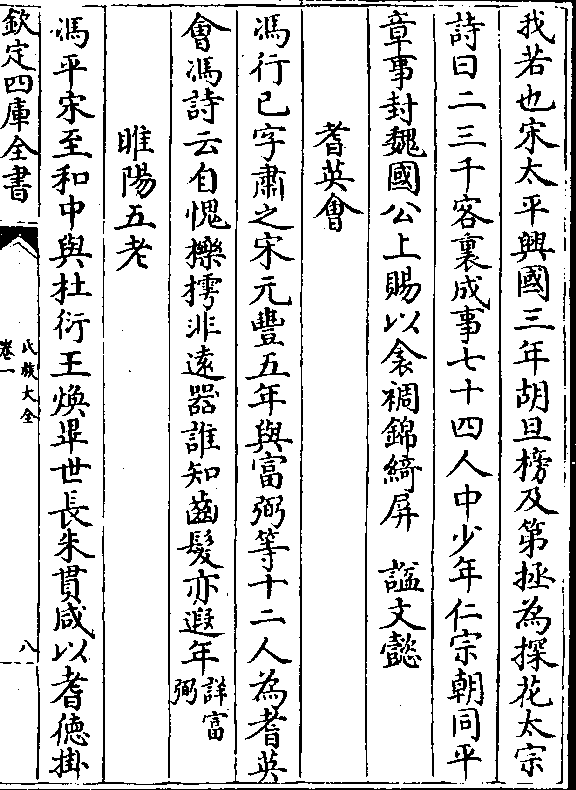 我若也宋太平興國三年胡旦榜及第拯為探花太宗
詩曰二三千客裏成事七十四人中少年仁宗朝同平
章事封魏國公上賜以衾裯錦綺屏 諡文懿
耆英會
馮行已字肅之宋元豐五年與富弼等十二人為耆英
會馮詩云自愧擽樗非遠器誰知齒髮亦遐年詳富弼
睢陽五老
馮平宋至和中與杜衍王煥畢世長朱貫咸以耆徳掛
欽定四庫全書
氏族大全
卷一
八